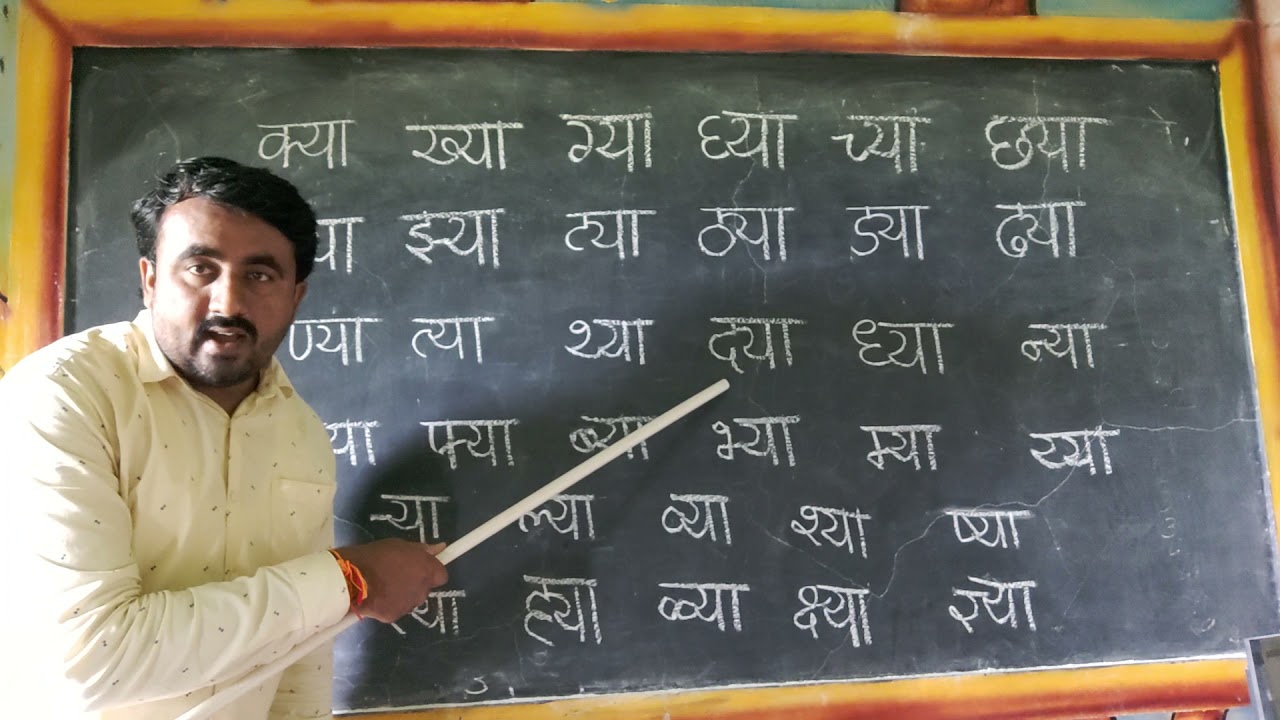 क्या ख्या ग्या घ्या च्या छ्या
झ्या ट्या ठ्या ड्या ढ्या
ण्या त्या थ्या द्या ध्या न्या
फ्या ब्या भ्या म्या य्या
ऱ्या ल्या व्या श्या ष्या
स्या ह्या ळ्या क्ष्या ज्ञ्या